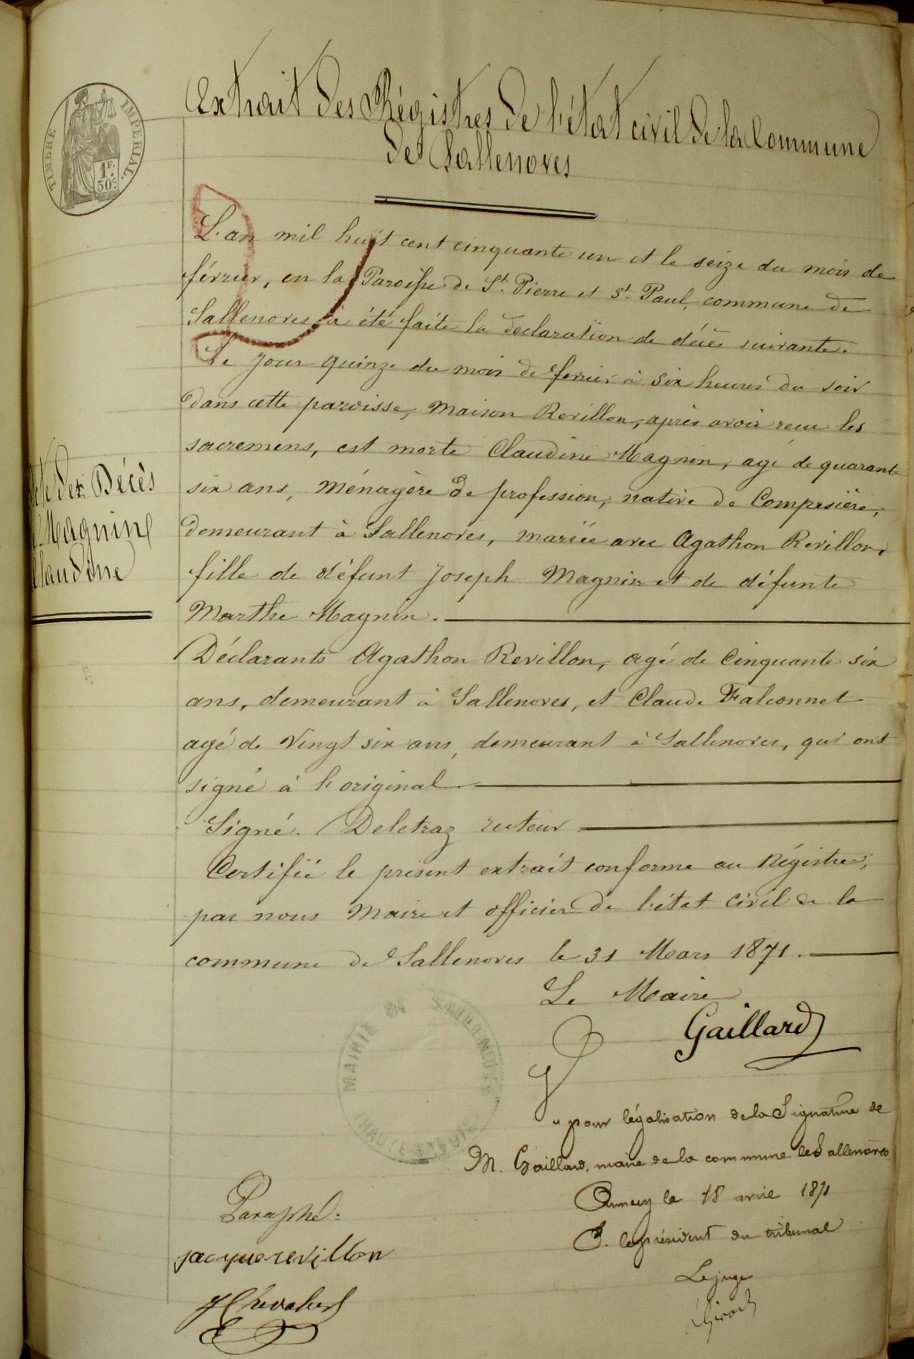 TIMBRE IMPÉRIAL
1F.
50c.
Extrait des Régistres de l'état civil de la Commune
de Sallenoves
L'an mil huit cent cinquante un et le seize du mois de
février, en la Paroisse de St. Pierre et St. Paul, commune de
Sallenoves à été faite la déclaration de décès suivante.
Le jour quinze du mois de fevrier à six heures du soir
dans cette paroisse, maison Revillon, après avoir reçu les
sacremens, est morte Claudine Magnin, agé de quarante
six ans, Ménagère de profession, native de Compesière,
demeurant à Sallenoves, mariée avec Agathon Revillon,
fille de défunt Joseph Magnin et de défunte
Marthe Magnin.
Décès
Magnin
Claudine
Déclarants Agathon Revillon, agé de Cinquante six
ans, demeurant à Sallenoves, et Claude Falconnet
agé de Vingt six ans, demeurant à Sallenoves, qui ont
signé à l'original
Signé. Deletraz recteur
Certifié le présent extrait conforme au Régistre,
par nous Maire et officier de l'état civil de la
commune de Sallenoves le 31 Mars 1871.
Le Maire
Gaillard
MAIRIE DE SALLENOVES
(HAUTE SAVOIE)
Vu pour légalisation de la Signature de
M. Gaillard, maire de la commune de Sallenoves
Annecy le 18 avril 1871
P. le président du tribunal
Le juge
Paraphé.
jacque revillon